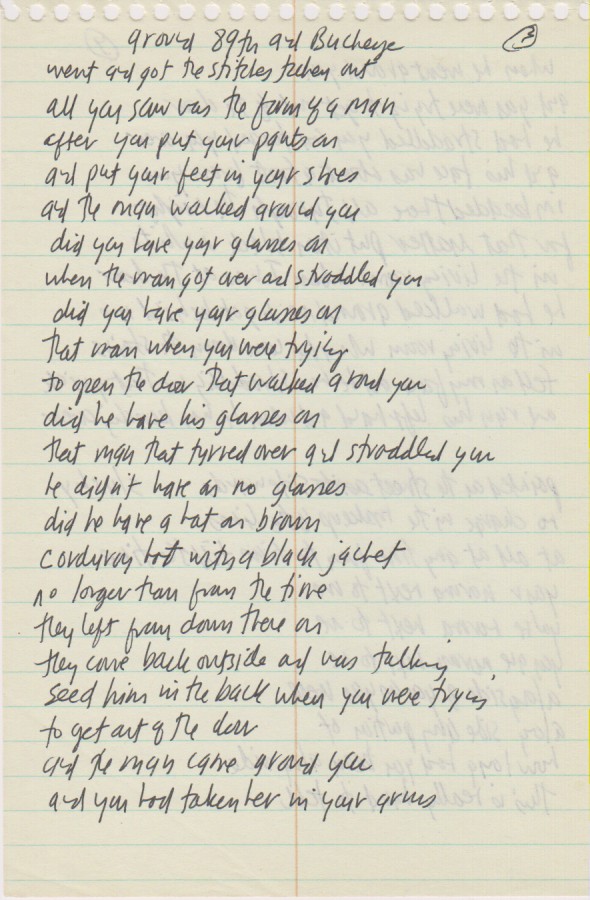 3
around 89th and Bucheye
went and got the stitches taken out
all you saw was the form of a man
after you put your pants on
and put your feet in your shoes
and the man walked around you
did you have your glasses on
when the man got over and straddled you
did you have your glasses on
that man when you were trying
to open the door that walked around you
did he have his glasses on
that man that turned over and straddled you
he didn't have on no glasses
did he have a hat on brown
corduroy hat with a black jacket
no longer than from the time
they left from down there on
they come back outside and was talking
seed him in the back when you were trying
to get out of the door
and the man came around you
and you had taken her in your arms